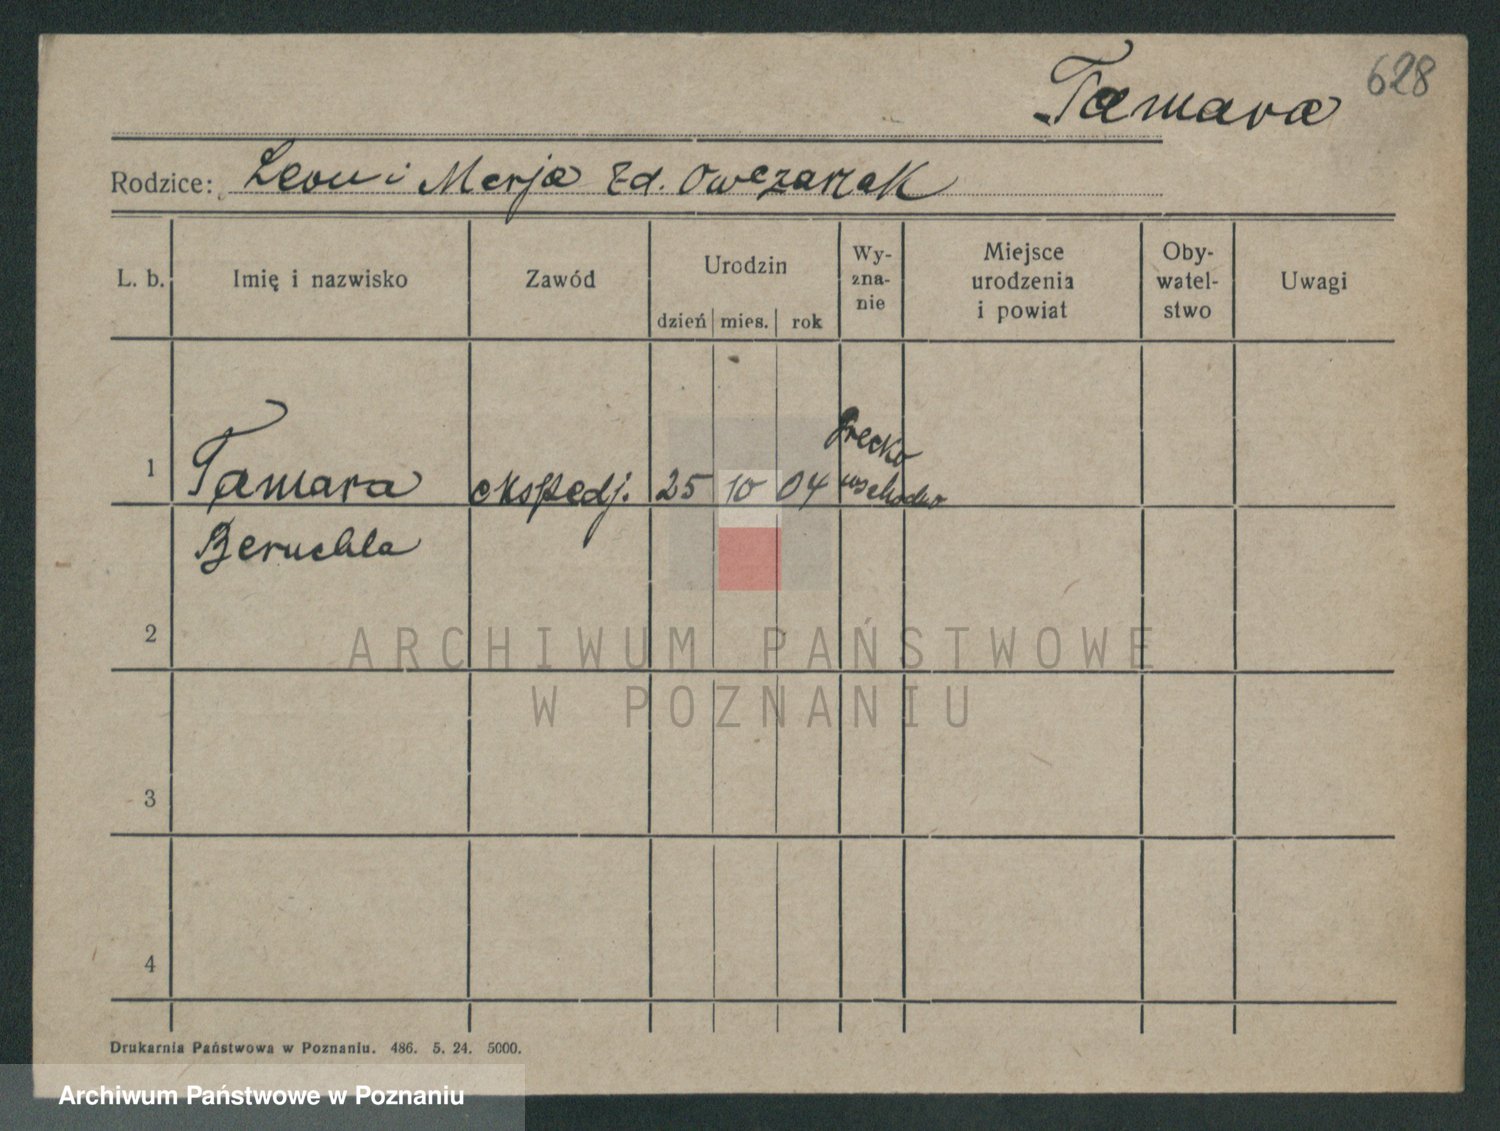 628
Tamara
Rodzice: Leon i Marja zd. Owczarzak
L. b. Imię i nazwisko Zawód Urodzin dzień mies. rok Wy-zna-nie Miejsce urodzenia i powiat Oby-watel-stwo Uwagi
grecko
1 Tamara ekspedj. 25 10 04 wschodno
Beruchla
2
ARCHIWUM PAŃSTWOWE
W POZNANIU
3
4
Drukarnia Państwowa w Poznaniu. 486. 5. 24. 5000.
Archiwum Państwowe w Poznaniu